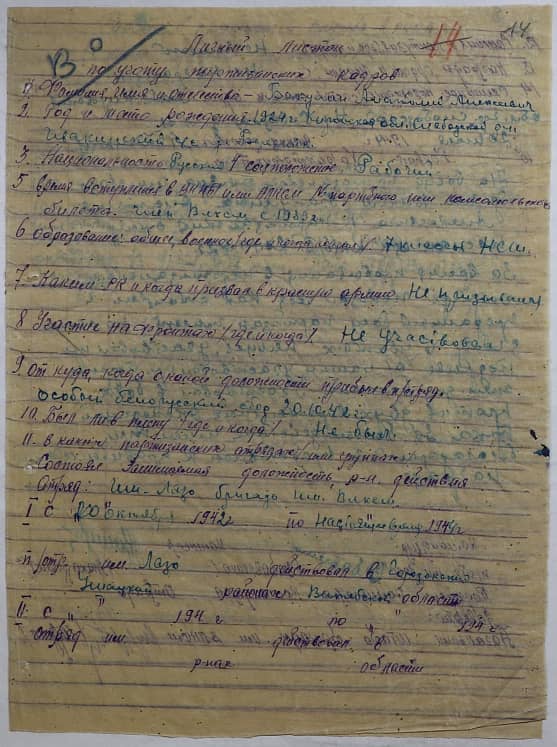 14 14
Личный листок
В
по учету партизанских кадров
1. Фамилия, имя и отчества – Анатолий Алексеевич
2. Год и место рождения 1924 г Кировская обл. Слободской
3. Национальность Русский 4 соцположение Рабочий
5 время вступления в или № партбилета или комсомольского
билета. член Влксм с 1939 г
6 образование: общее, военное /где 7 классов НСШ.
7. Каким РК и когда призван в красную армию Не призывался
8 Участие на фронтах /где и когда/. Не участвовал
9 От куда, когда с какой должности прибыл в отряд.
особый Белорусский сбор 20.10.42 г
10. Был ли в плену /где и когда/ Не был.
11. в каких партизанских отрядах, или группах
состоял Занимаемая должность, р-н. действия
Отряд: Им. Лазо бригада им. Влксм.
I с "20" октября 1942 г по 1944 г
п/отр. им. Лазо действовал в
районах Витебской области
II. с " 194 г по " 194 г
отряд им. действовал
р-нах области